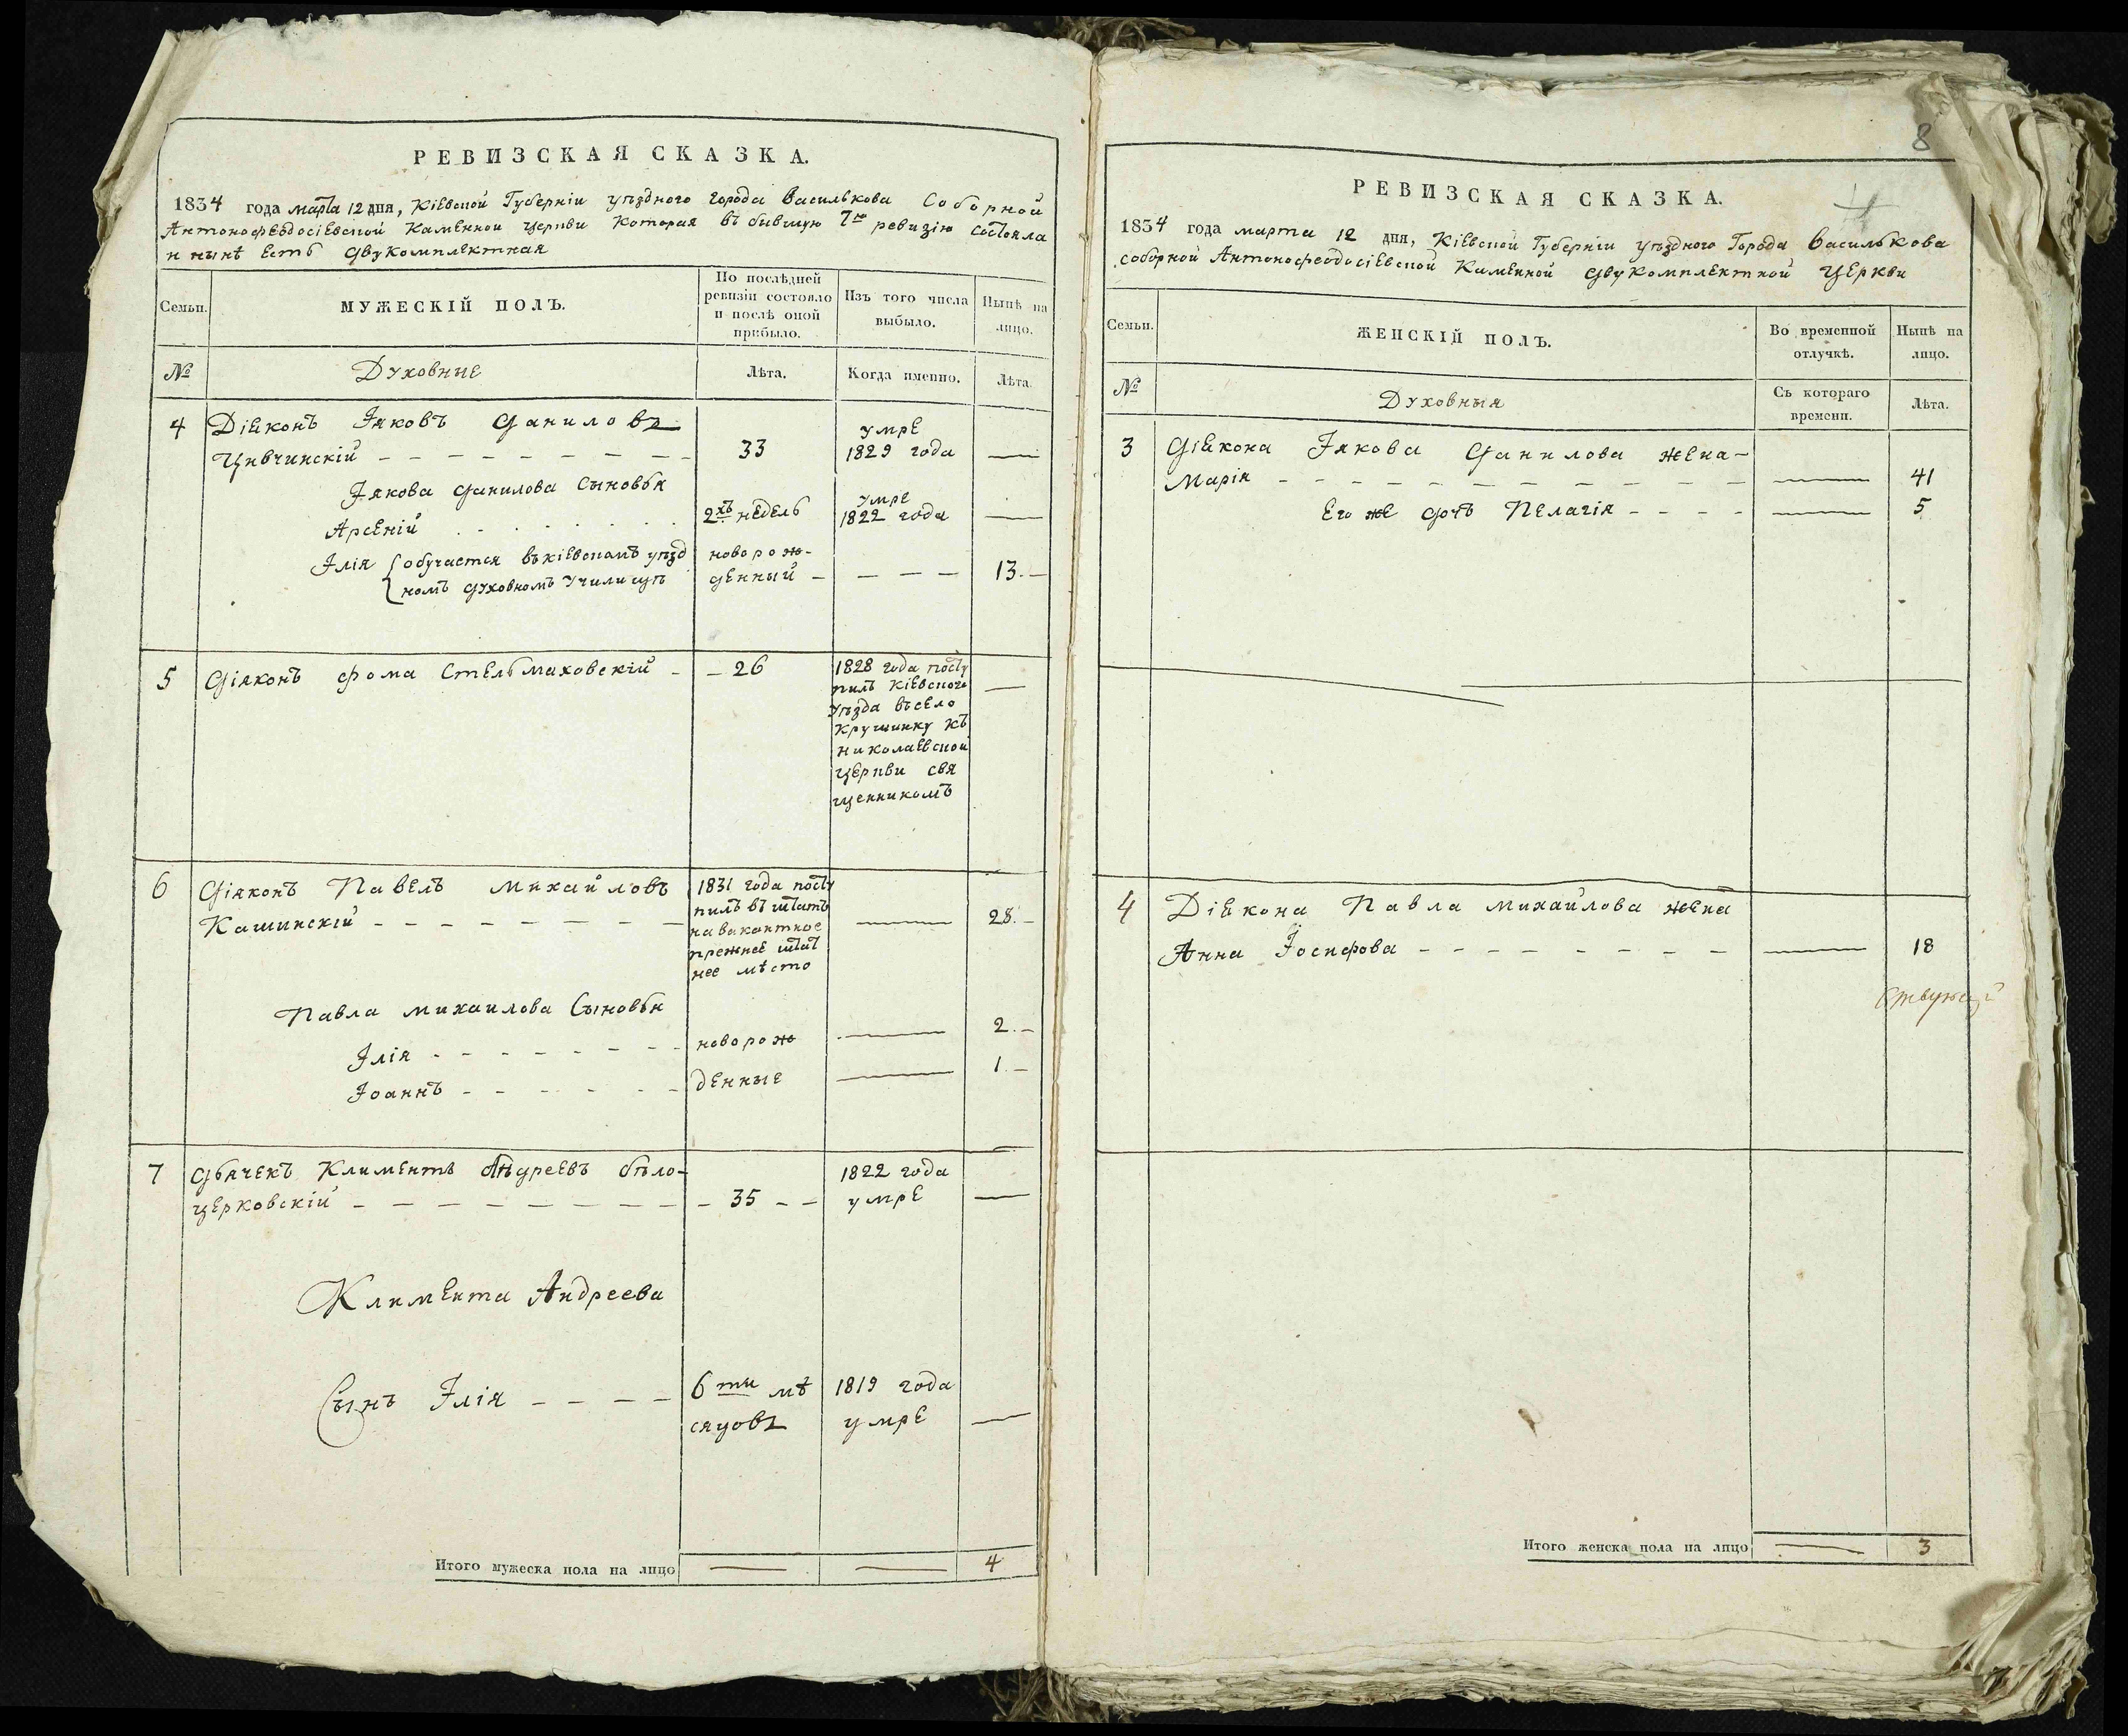 РЕВИЗСКАЯ СКАЗКА.
1834 года марта 12 дня, Кіевской Губерніи уѣздного города Василькова Соборной
Антонофеодосіевской Каменной церкви которая въ бывшую 7ю ревизію состояла
и нынѣ есть двукомплектная
Семьи.
МУЖЕСКІЙ ПОЛЪ.
По послѣдней
ревизіи состояло
и послѣ оной
прибыло.
Изъ того числа
выбыло.
Нынѣ на
лицо.
№
Духовные
Лѣта.
Когда именно.
Лѣта.
4 Діаконъ Іяковъ Даниловъ
умре
Цивчинскій 33 1829 года
Іякова Данилова Сыновья
умре
Арсеній 2хъ недель 1822 года
Ілія обучается въ кіевскомъ уѣзд новорож-
номъ духовномъ Училищѣ денный 13.
5 Діяконъ Фома Стельмаховскій 26 1828 года посту
пилъ Кіевского
уѣзда въ село
Крушинку къ
николаевской
церкви свя
щенникомъ
6 Діяконъ Павелъ Михайловъ 1831 года посту
Кашинскій пилъ въ штатъ 28.
на вакантное
прежнее штат
нее мѣсто
Павла Михаилова Сыновья
Ілія новорож 2.
Іоаннъ денные 1.
7 Дьячекъ Климентъ Андреевъ бѣло- 1822 года
церковскій 35 умре
Климента Андреева
Сынъ Ілія 6ти мѣ 1819 года
сяцовъ умре
Итого мужеска пола на лицо 4
8
4
РЕВИЗСКАЯ СКАЗКА.
1834 года марта 12 дня, Кіевской Губерніи уѣздного Города Василькова
соборной Антонофеодосіевской Каменной двукомплектной Церкви
Семьи.
ЖЕНСКІЙ ПОЛЪ.
Во временной
отлучкѣ.
Нынѣ на
лицо.
№
Духовныя
Съ котораго
времени.
Лѣта.
3 Діакона Іякова Данилова жена
Марія 41
Его же дочь Пелагія 5
4 Діакона Павла Михайлова жена
Анна Іосифова 18
Итого женска пола на лицо 3